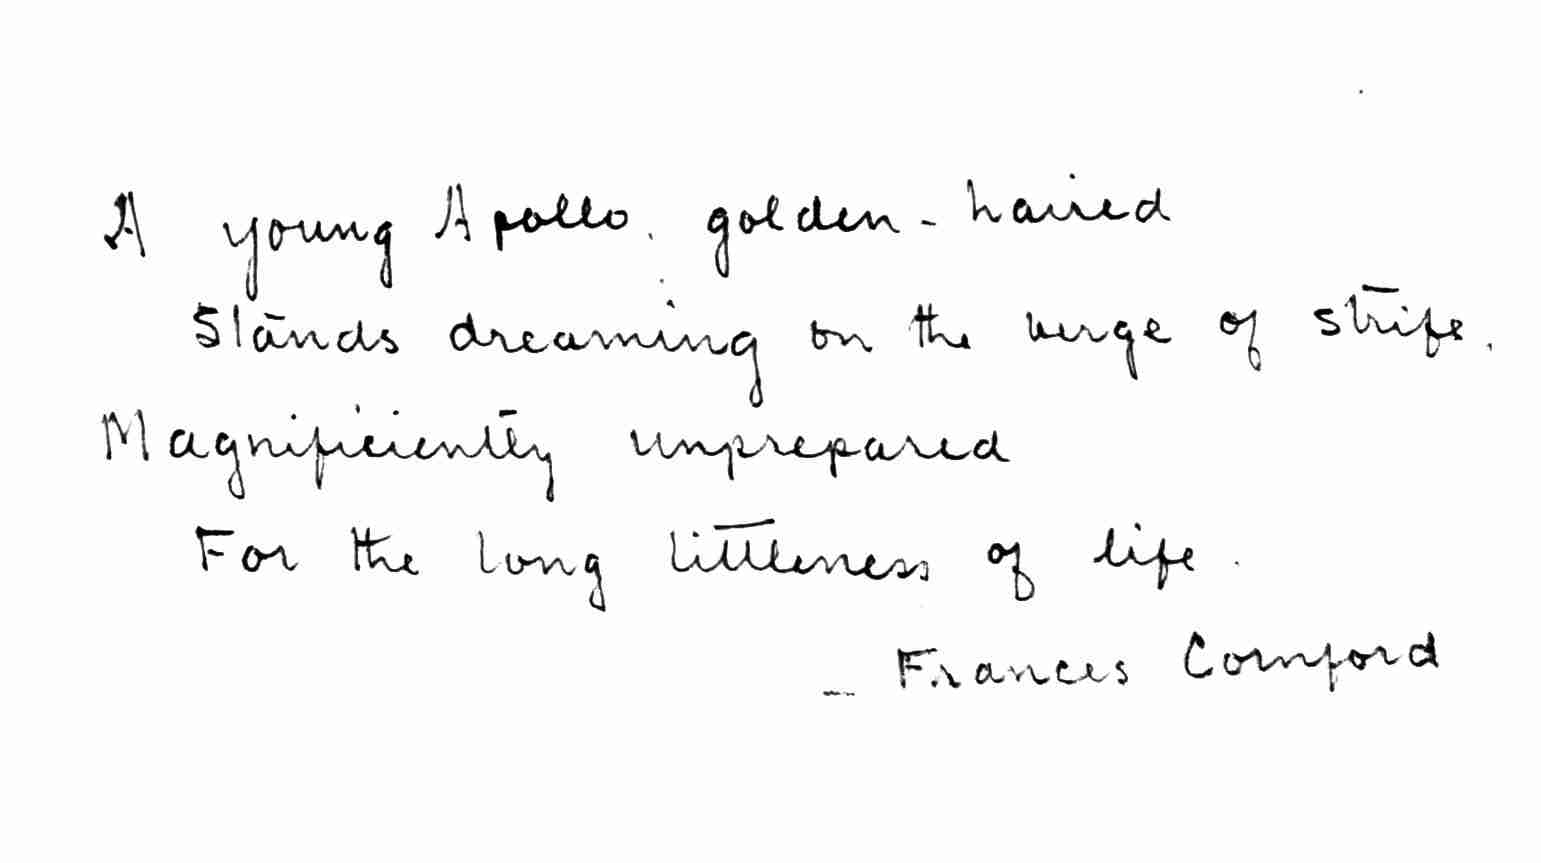 A young Apollo, golden-haired
Stands dreaming on the verge of strife,
Magnificiently unprepared
For the long littleness of life.
— Frances Cornford